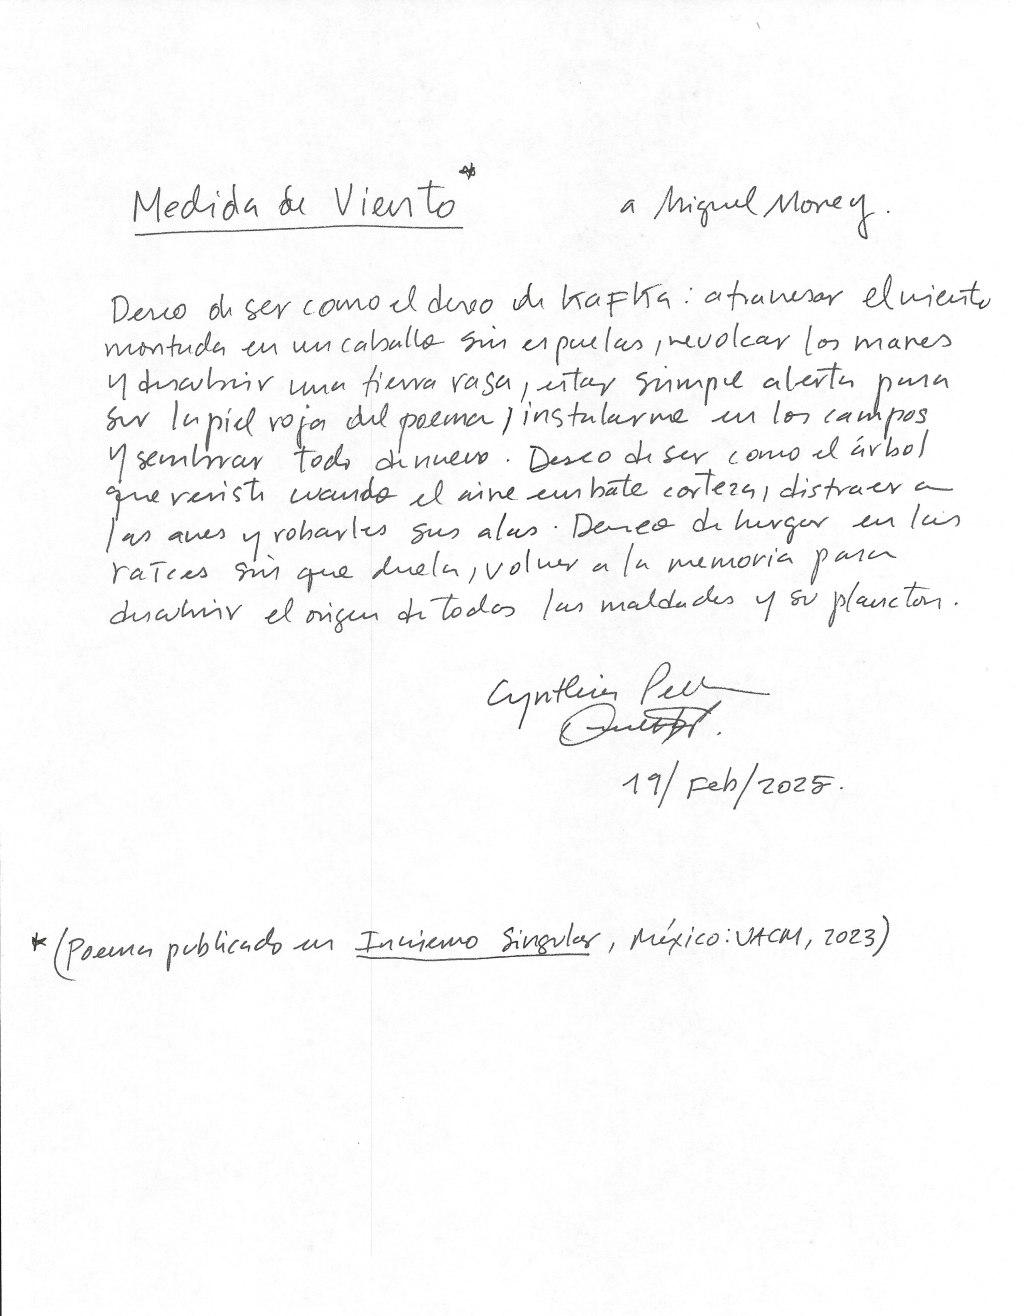 Medida de Viento*
a Miguel Morey.
Deseo de ser como el deseo de Kafka: atravesar el viento
montada en un caballo sin espuelas, revolcar los mares
y descubrir una tierra rasa, estar siempre abierta para
ser la piel roja del poema, instalarme en los campos
y sembrar todo de nuevo. Deseo de ser como el árbol
que resiste cuando el aire embate corteza, distraer a
las aves y robarles sus alas. Deseo de hurgar en las
raíces sin que duela, volver a la memoria para
descubrir el origen de todas las maldades y su plancton.
Cynthia
19/Feb/2025.
*(Poema publicado en Invierno Singular, México: UACM, 2023)